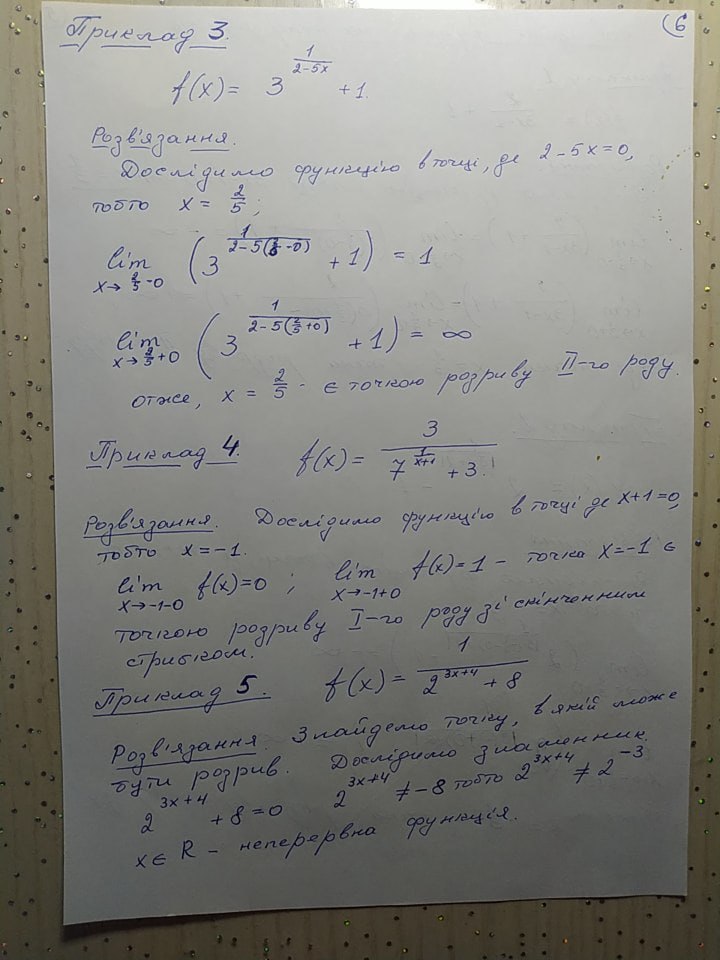 6
Приклад 3.
f(x) = 3^{\frac{1}{2-5x}} + 1.
Розв'язання.
Дослідимо функцію в точці, де 2 - 5x = 0,
тобто x = \frac{2}{5};
lim_{x→\frac{2}{5}-0} (3^{\frac{1}{2-5(\frac{2}{5}-0)}} + 1) = 1
lim_{x→\frac{2}{5}+0} (3^{\frac{1}{2-5(\frac{2}{5}+0)}} + 1) = ∞
отже, x = \frac{2}{5} - є точкою розриву II-го роду.
Приклад 4. f(x) = \frac{3}{7^{\frac{1}{x+1}} + 3.}
Розв'язання. Дослідимо функцію в точці де x+1=0,
тобто x = -1.
lim_{x→-1-0} f(x) = 0 ; lim_{x→-1+0} f(x) = 1 - точка x = -1 є
точкою розриву I-го роду зі скінченним
стрибком.
Приклад 5. f(x) = \frac{1}{2^{3x+4} + 8}
Розв'язання. Знайдемо точку, в якій може
бути розрив. Дослідимо знаменник.
2^{3x+4} + 8 = 0 2^{3x+4} ≠ -8 тобто 2^{3x+4} ≠ 2^{-3}
x ∈ R - неперервна функція.